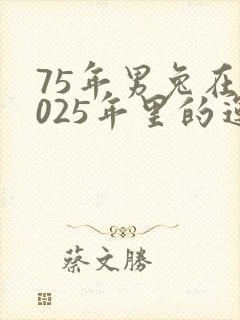 75年男兔在
025年里的
蔡文勝